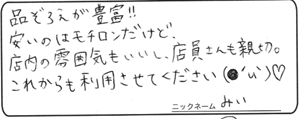 品ぞろえが豊富!!
安いのはモチロンだけど、
店内の雰囲気もいいし、店員さんも親切。
これからも利用させてください(●'ω')♡
ニックネーム みい